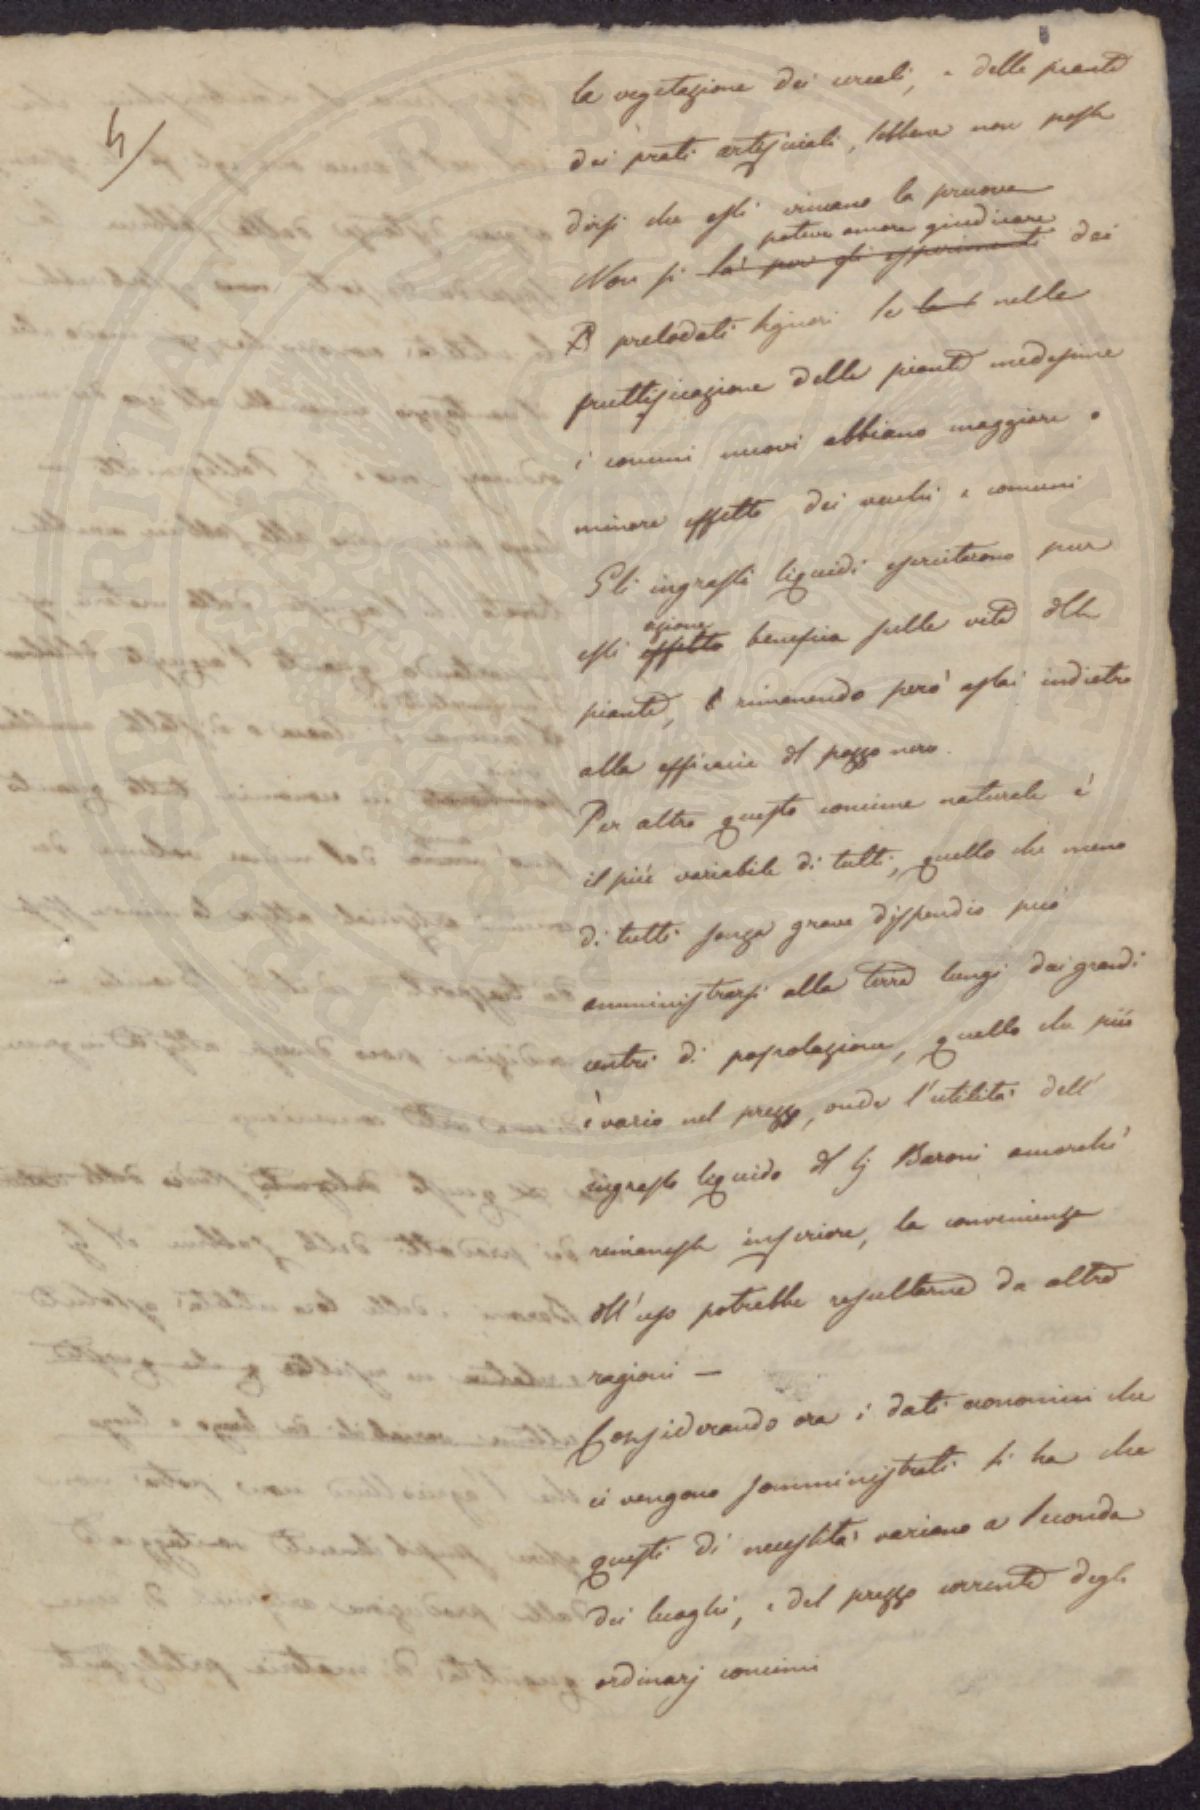 4/
la vegetazione dei cereali, e delle piante
dei prati artificiali, sebbene non possa
dirsi che essi vincano la pruova
potuto ancora giudicare
Non si ha per gli esperimenti dai
prelodati signori se nella
fruttificazione delle piante medesime
i concimi nuovi abbiano maggiore o
minore effetto dei vecchi e comuni
Gli ingrassi liquidi esercitarono pur
azione
essi effetto benefica sulla vita della
piante, rimanendo però assai indietro
alla efficacia del pozzo nero.
Per altro questo concime naturale è
il più variabile di tutti, quello che meno
di tutti senza grave dispendio può
amministrarsi alla terra lungi dai grandi
centri di popolazione, quello che più
è vario nel prezzo, onde l'utilità dell'
ingrasso liquido del Sig Baroni ancorchè
rimanesse inferiore, la convenienza
dell'uso potrebbe resultarne da altre
ragioni —
Considerando ora i dati economici che
ci vengono somministrati si ha che
questi di necessità variano a seconda
dei luoghi, e del prezzo corrente degli
ordinarj concimi